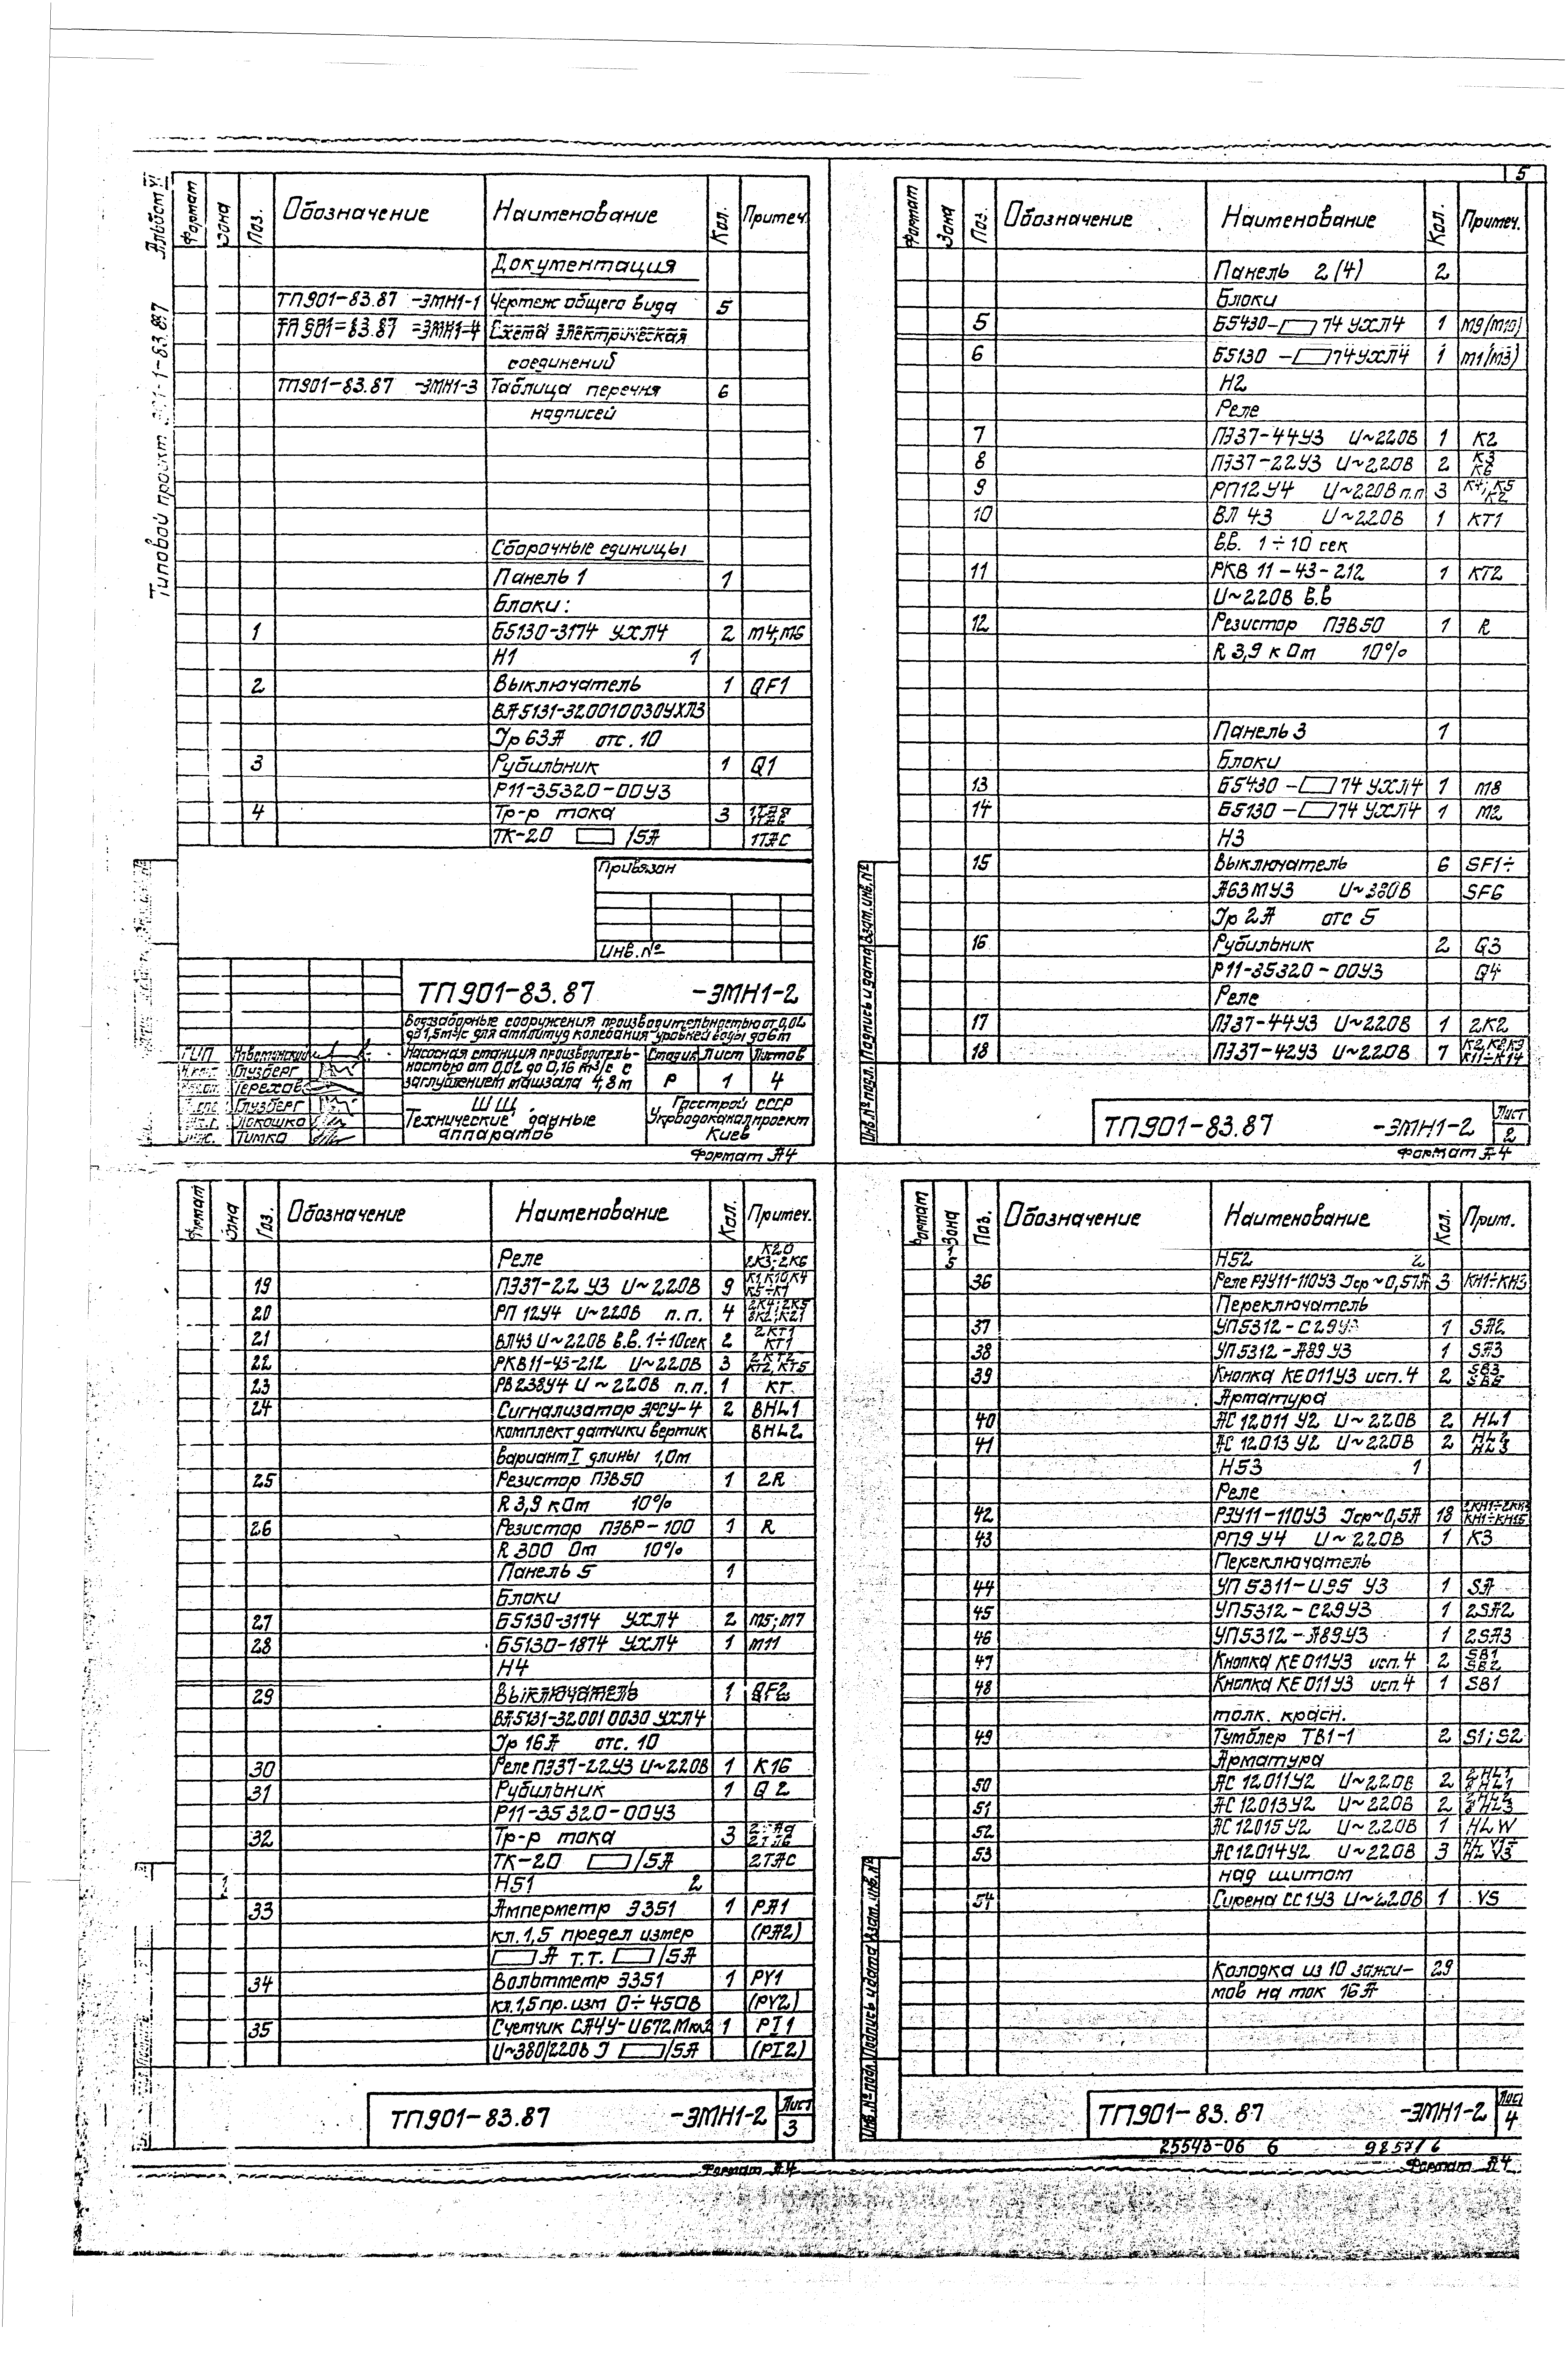 5
Альбом VI
Типовой проект 901-1-83.87
Формат Зона Поз. Обозначение Наименование Кол. Примеч.
Документация
ТП901-83.87 -ЭМН1-1 Чертеж общего вида 5
ТП901-83.87 -ЭМН1-4 Схема электрическая
соединений
ТП901-83.87 -ЭМН1-3 Таблица перечня 6
надписей
Сборочные единицы
Панель 1 1
Блоки:
1 Б5130-3174 УХЛ4 2 М4; М6
Н1 1
2 Выключатель 1 QF1
ВА5131-320010030УХЛ3
Iр 63А отс. 10
3 Рубильник 1 Q1
Р11-35320-00У3
4 Тр-р тока 3
ТК-20 /5А 1ТАС
Привязан
Инв.№
ТП901-83.87 -ЭМН1-2
Водозаборные сооружения производительностью от 0,02
до 1,5м³/с для амплитуд колебания уровней воды до 6м
ГИП
Насосная станция производитель-
ностью от 0,02 до 0,16 м³/с с
заглублением машзала 4,8м
Стадия Лист Листов
Р 1 4
Глузберг
Терехов
Глузберг
Локошко
Тимко
ШЩ.
Технические данные
аппаратов
Госстрой СССР
Укрводоканалпроект
Киев
Формат А4
Формат Зона Поз. Обозначение Наименование Кол. Примеч.
Панель 2(4) 2
Блоки
5 Б5430- 74 УХЛ4 1 М9/М10)
6 Б5130 - 74УХЛ4 1 М1/М3)
Н2
Реле
7 ПЭ37-44У3 U~220В 1 К2
8 ПЭ37-22У3 U~220В 2 К3 К6
9 РП12У4 U~220В п.п 3 К4; К5 К2
10 ВЛ 43 U~220В 1 КТ1
в.в. 1÷10 сек
11 РКВ 11-43-212 1 КТ2
U~220В в.в
12 Резистор ПЭВ50 1 R
R 3,9 кОм 10%
Панель 3 1
Блоки
13 Б5430 - 74 УХЛ4 1 М8
14 Б5130 - 74 УХЛ4 1 М2
Н3
15 Выключатель 6 SF1÷
А63МУ3 U~380В SF6
Iр 2А отс 5
16 Рубильник 2 Q3
Р11-35320-00У3 Q4
Реле
17 ПЭ37-44У3 U~220В 1 2К2
18 ПЭ37-42У3 U~220В 7 К2, К8, К9 К11÷К14
Инв.№ подл. Подпись и дата Взам. инв.№
ТП901-83.87 -ЭМН1-2 Лист 2
Формат А4
Формат Зона Поз. Обозначение Наименование Кол. Примеч.
Реле К20 2К3; 2К6
19 ПЭ37-22 У3 U~220В 9 К1 К10 К4 К5÷К7
20 РП 12У4 U~220В п.п. 4 2К4; 2К5 8К2; К21
21 ВЛ43 U~220В в.в. 1÷10сек 2 2КТ1 КТ1
22 РКВ11-43-212 U~220В 3 2КТ2 КТ2, КТ5
23 РВ238У4 U~220В п.п. 1 КТ
24 Сигнализатор ЭРСУ-4 2 ВНL1
комплект датчики вертик ВНL2
вариант I длины 1,0м
25 Резистор ПЭВ50 1 2R
R 3,9 кОм 10%
26 Резистор ПЭВР-100 1 R
R 300 Ом 10%
Панель 5 1
Блоки
27 Б5130-3174 УХЛ4 2 М5; М7
28 Б5130-1874 УХЛ4 1 М11
Н4
29 Выключатель 1 QF2
ВА5131-32001 0030 УХЛ4
Iр 16А отс. 10
30 Реле ПЭ37-22У3 U~220В 1 К16
31 Рубильник 1 Q2
Р11-35320-00У3
32 Тр-р тока 3
ТК-20 /5А 2ТАС
Н51 2
33 Амперметр Э351 1 РА1
кл. 1,5 предел измер (РА2)
А Т.Т. /5А
34 Вольтметр Э351 1 РУ1
кл. 1,5 пр. изм 0÷450В (РУ2)
35 Счетчик СА4У-И672М кл2 1 РI1
U~380/220В I /5А (РI2)
ТП901-83.87 -ЭМН1-2 Лист 3
Формат А4
Формат Зона Поз. Обозначение Наименование Кол. Прим.
1 5 Н52 2
36 Реле РЭУ11-110У3 Iср~0,57А 3 КН1÷КН3
Переключатель
37 УП5312-С29У3 1 SА2
38 УП5312-А89 У3 1 SА3
39 Кнопка КЕ011У3 исп. 4 2 SВ3
Арматура
40 АС 12011 У2 U~220В 2 НL1
41 АС 12013 У2 U~220В 2 НL2 НL3
Н53 1
Реле
42 РЭУ11-110У3 Iср~0,5А 18 2КН1÷2КН3 КН1÷КН15
43 РП9 У4 U~220В 1 К3
Переключатель
44 УП 5311-И95 У3 1 SА
45 УП5312-С29У3 1 2SА2
46 УП5312-А89У3 1 2SА3
47 Кнопка КЕ011У3 исп. 4 2 SВ1 SВ2
48 Кнопка КЕ011У3 исп. 4 1 SВ1
толк. красн.
49 Тумблер ТВ1-1 2 S1; S2
Арматура
50 АС 12011У2 U~220В 2 2НL1
51 АС 12013У2 U~220В 2
52 АС 12015 У2 U~220В 1 НLW
53 АС12014У2 U~220В 3
над щитом
54 Сирена СС1У3 U~220В 1 VS
Колодка из 10 зажи- 29
мов на ток 16А
Инв.№ подл. Подпись и дата Взам. инв.№
ТП901-83.87 -ЭМН1-2 Лист 4
25543-06 6
Формат А4